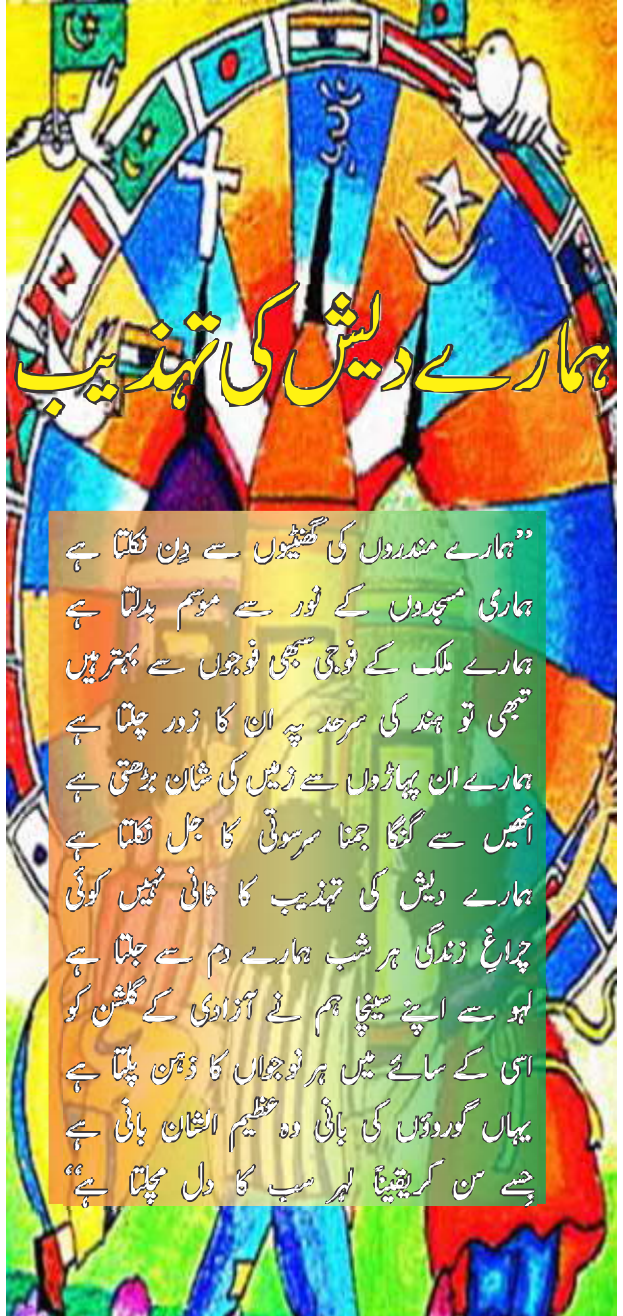 ہمارے دیش کی تہذیب
”ہمارے مندروں کی گھنٹیوں سے دِن نکلتا ہے
ہماری مسجدوں کے نور سے موسم بدلتا ہے
ہمارے ملک کے فوجی سبھی فوجوں سے بہتر ہیں
تبھی تو ہند کی سرحد پہ ان کا زور چلتا ہے
ہمارے ان پہاڑوں سے زمیں کی شان بڑھتی ہے
انھیں سے گنگا جمنا سرسوتی کا جل نکلتا ہے
ہمارے دیش کی تہذیب کا ثانی نہیں کوئی
چراغِ زندگی ہر شب ہمارے دم سے جلتا ہے
لہو سے اپنے سینچا ہم نے آزادی کے گلشن کو
اسی کے سائے میں ہر نوجواں کا ذہن پلتا ہے
یہاں گوروؤں کی بانی وہ عظیم الشان بانی ہے
جسے سن کر یقیناً لہر سب کا دل مچلتا ہے“